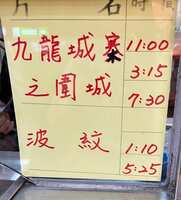 片名 時間
九龍城寨 11:00
3:15
之圍城
7:30
波紋 1:10
5:25